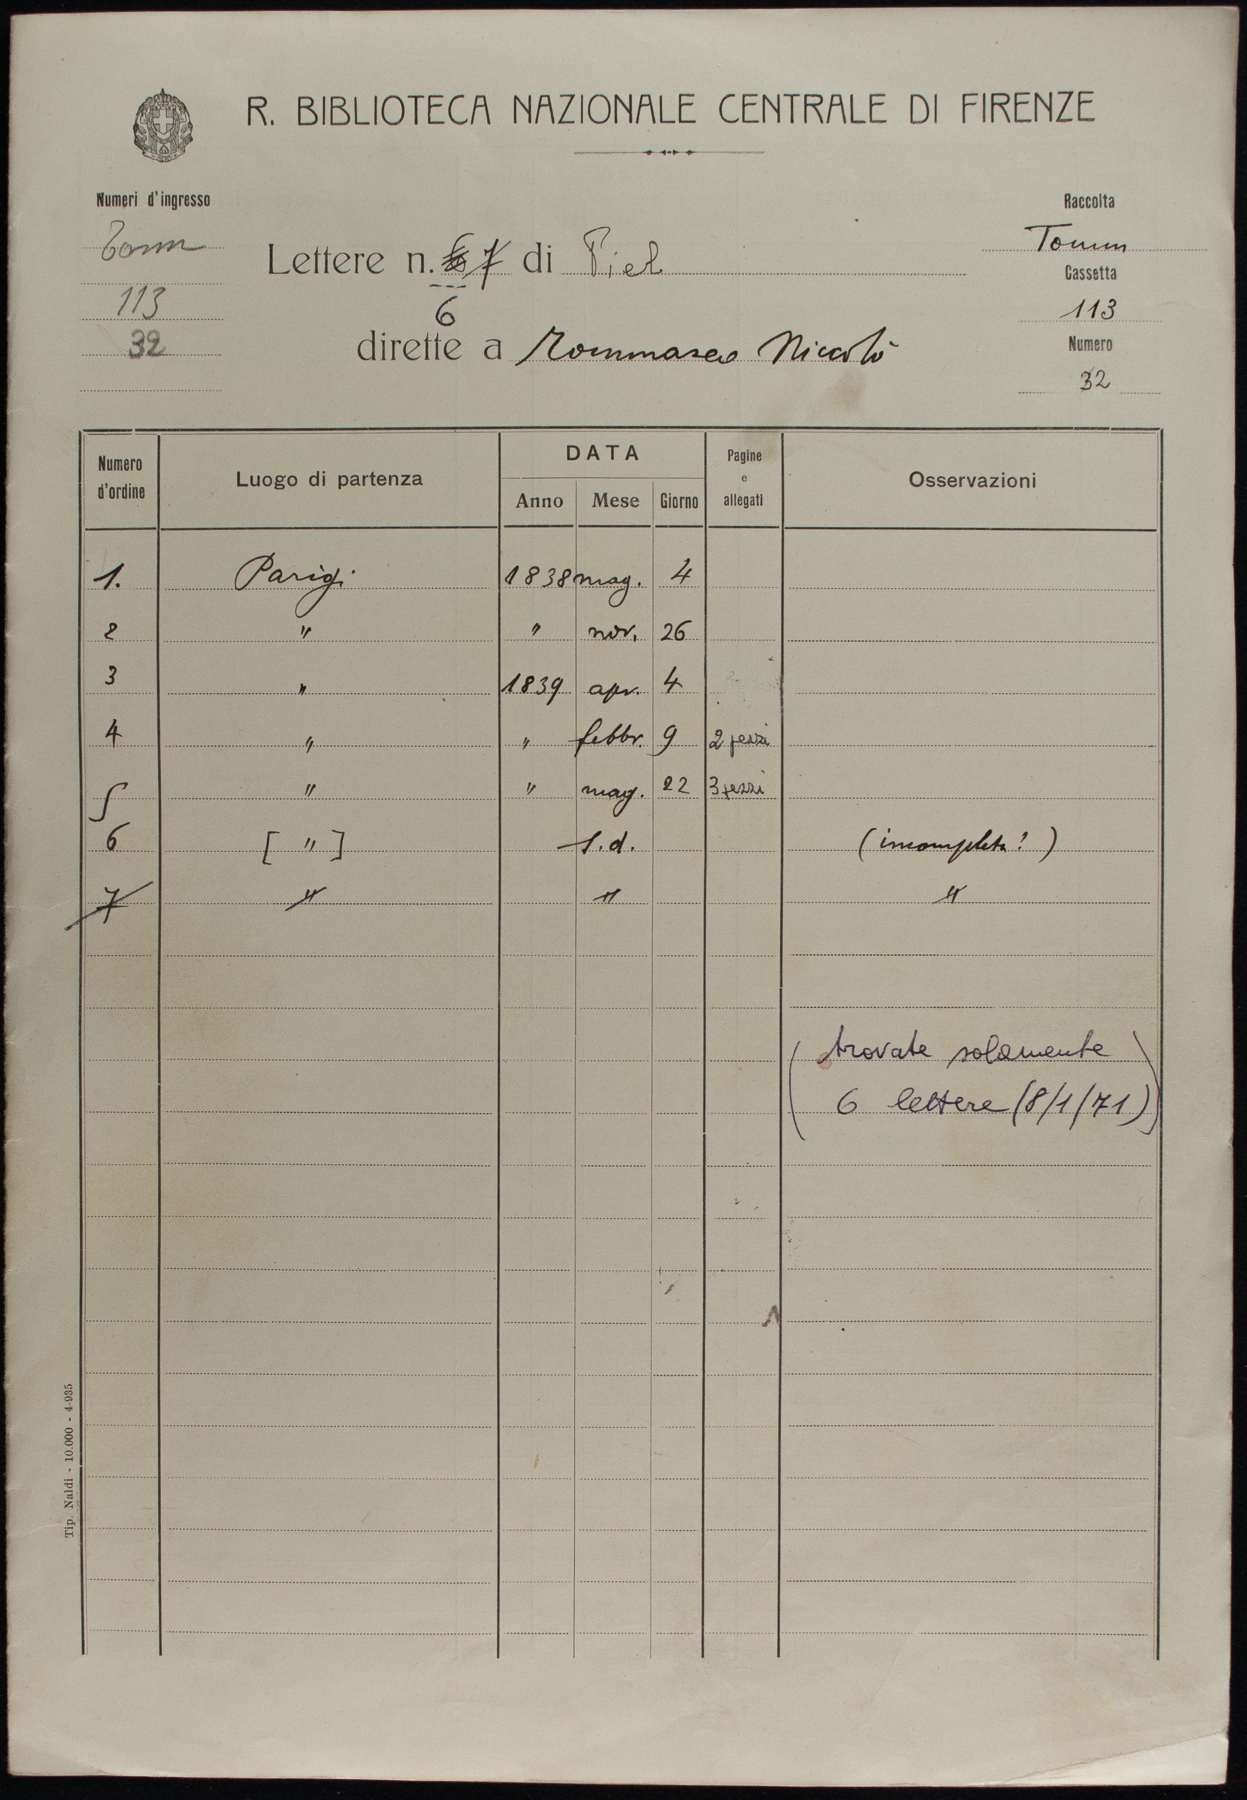 R. BIBLIOTECA NAZIONALE CENTRALE DI FIRENZE
Numeri d'ingresso
Tomm
113
32
Lettere n. 7 di Piel
6
dirette a Tommaseo Niccolò
Raccolta
Tomm
Cassetta
113
Numero
32
Numero d'ordine Luogo di partenza DATA Anno Mese Giorno Pagine e allegati Osservazioni
1. Parigi 1838 mag. 4
2 " " nov. 26
3 " 1839 apr. 4
4 " " febbr. 9 2 pezzi
5 " " mag. 22 3 pezzi
6 [ " ] s.d. (incompleta?)
7 " " "
(trovate solamente
6 lettere (8/1/71))
Tip. Naldi - 10.000 - 4-935